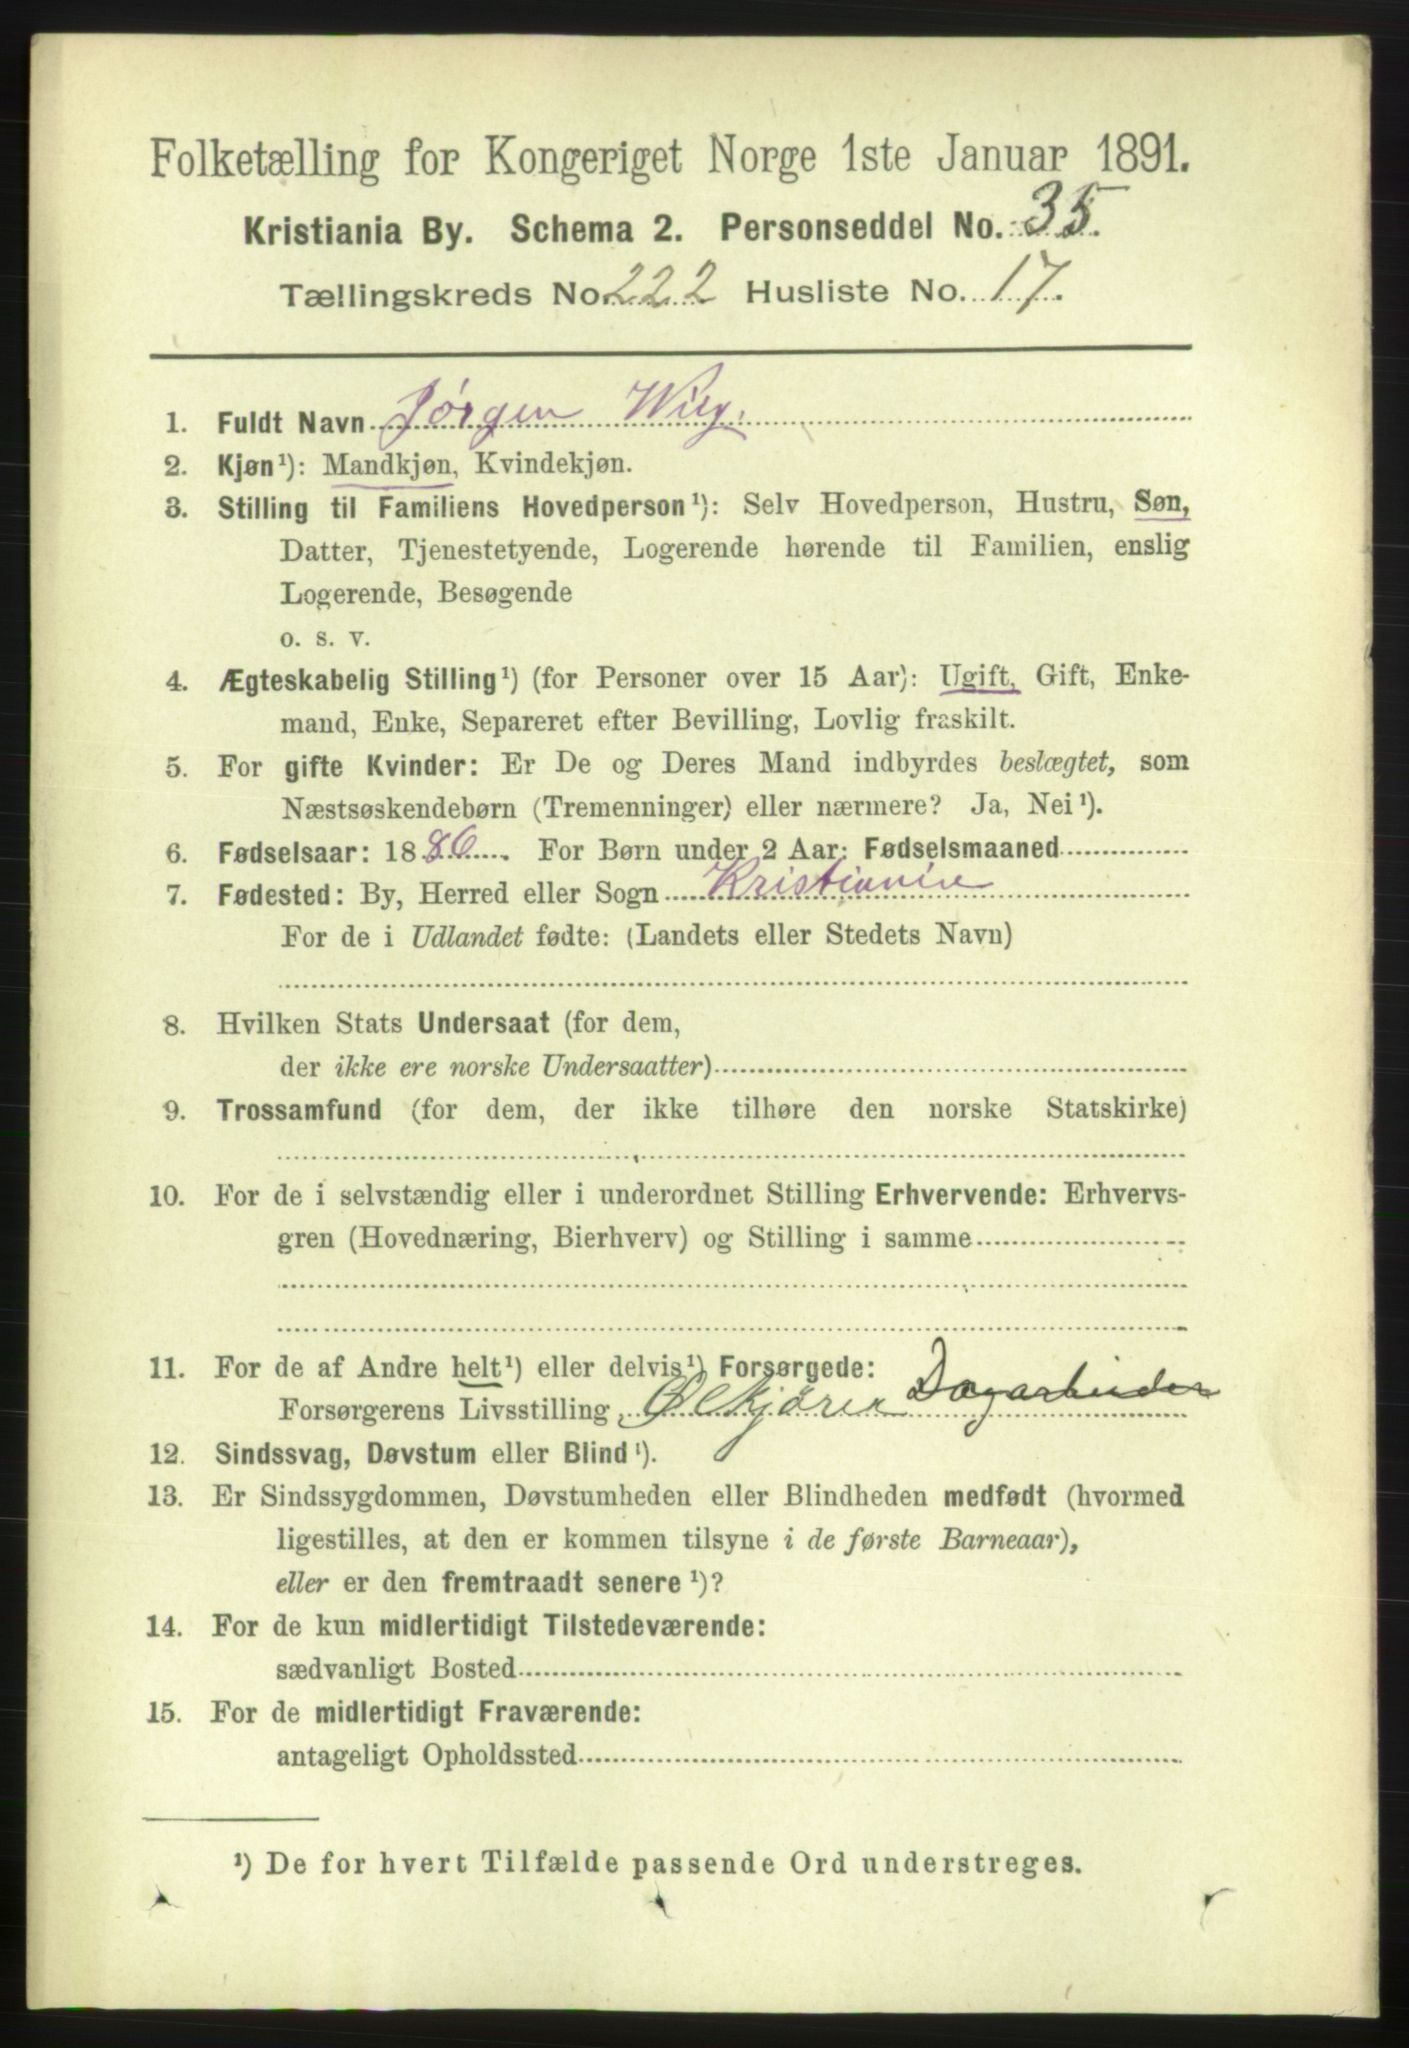 Folketælling for Kongeriget Norge 1ste Januar 1891.
Kristiania By. Schema 2. Personseddel No. 35.
Tællingskreds No. 222 Husliste No. 17.
1. Fuldt Navn Jørgen Wiig.
2. Kjøn¹): Mandkjøn, Kvindekjøn.
3. Stilling til Familiens Hovedperson¹): Selv Hovedperson, Hustru, Søn,
Datter, Tjenestetyende, Logerende hørende til Familien, enslig
Logerende, Besøgende
o. s. v.
4. Ægteskabelig Stilling¹) (for Personer over 15 Aar): Ugift, Gift, Enke-
mand, Enke, Separeret efter Bevilling, Lovlig fraskilt.
5. For gifte Kvinder: Er De og Deres Mand indbyrdes beslægtet, som
Næstsøskendebørn (Tremenninger) eller nærmere? Ja, Nei¹).
6. Fødselsaar: 1886. For Børn under 2 Aar: Fødselsmaaned
7. Fødested: By, Herred eller Sogn Kristiania
For de i Udlandet fødte: (Landets eller Stedets Navn)
8. Hvilken Stats Undersaat (for dem,
der ikke ere norske Undersaatter)
9. Trossamfund (for dem, der ikke tilhøre den norske Statskirke)
10. For de i selvstændig eller i underordnet Stilling Erhvervende: Erhvervs-
gren (Hovednæring, Bierhverv) og Stilling i samme
11. For de af Andre helt¹) eller delvis¹) Forsørgede:
Forsørgerens Livsstilling Ølkjører Dagarbeider
12. Sindssvag, Døvstum eller Blind¹).
13. Er Sindssygdommen, Døvstumheden eller Blindheden medfødt (hvormed
ligestilles, at den er kommen tilsyne i de første Barneaar),
eller er den fremtraadt senere¹)?
14. For de kun midlertidigt Tilstedeværende:
sædvanligt Bosted
15. For de midlertidigt Fraværende:
antageligt Opholdssted
¹) De for hvert Tilfælde passende Ord understreges.